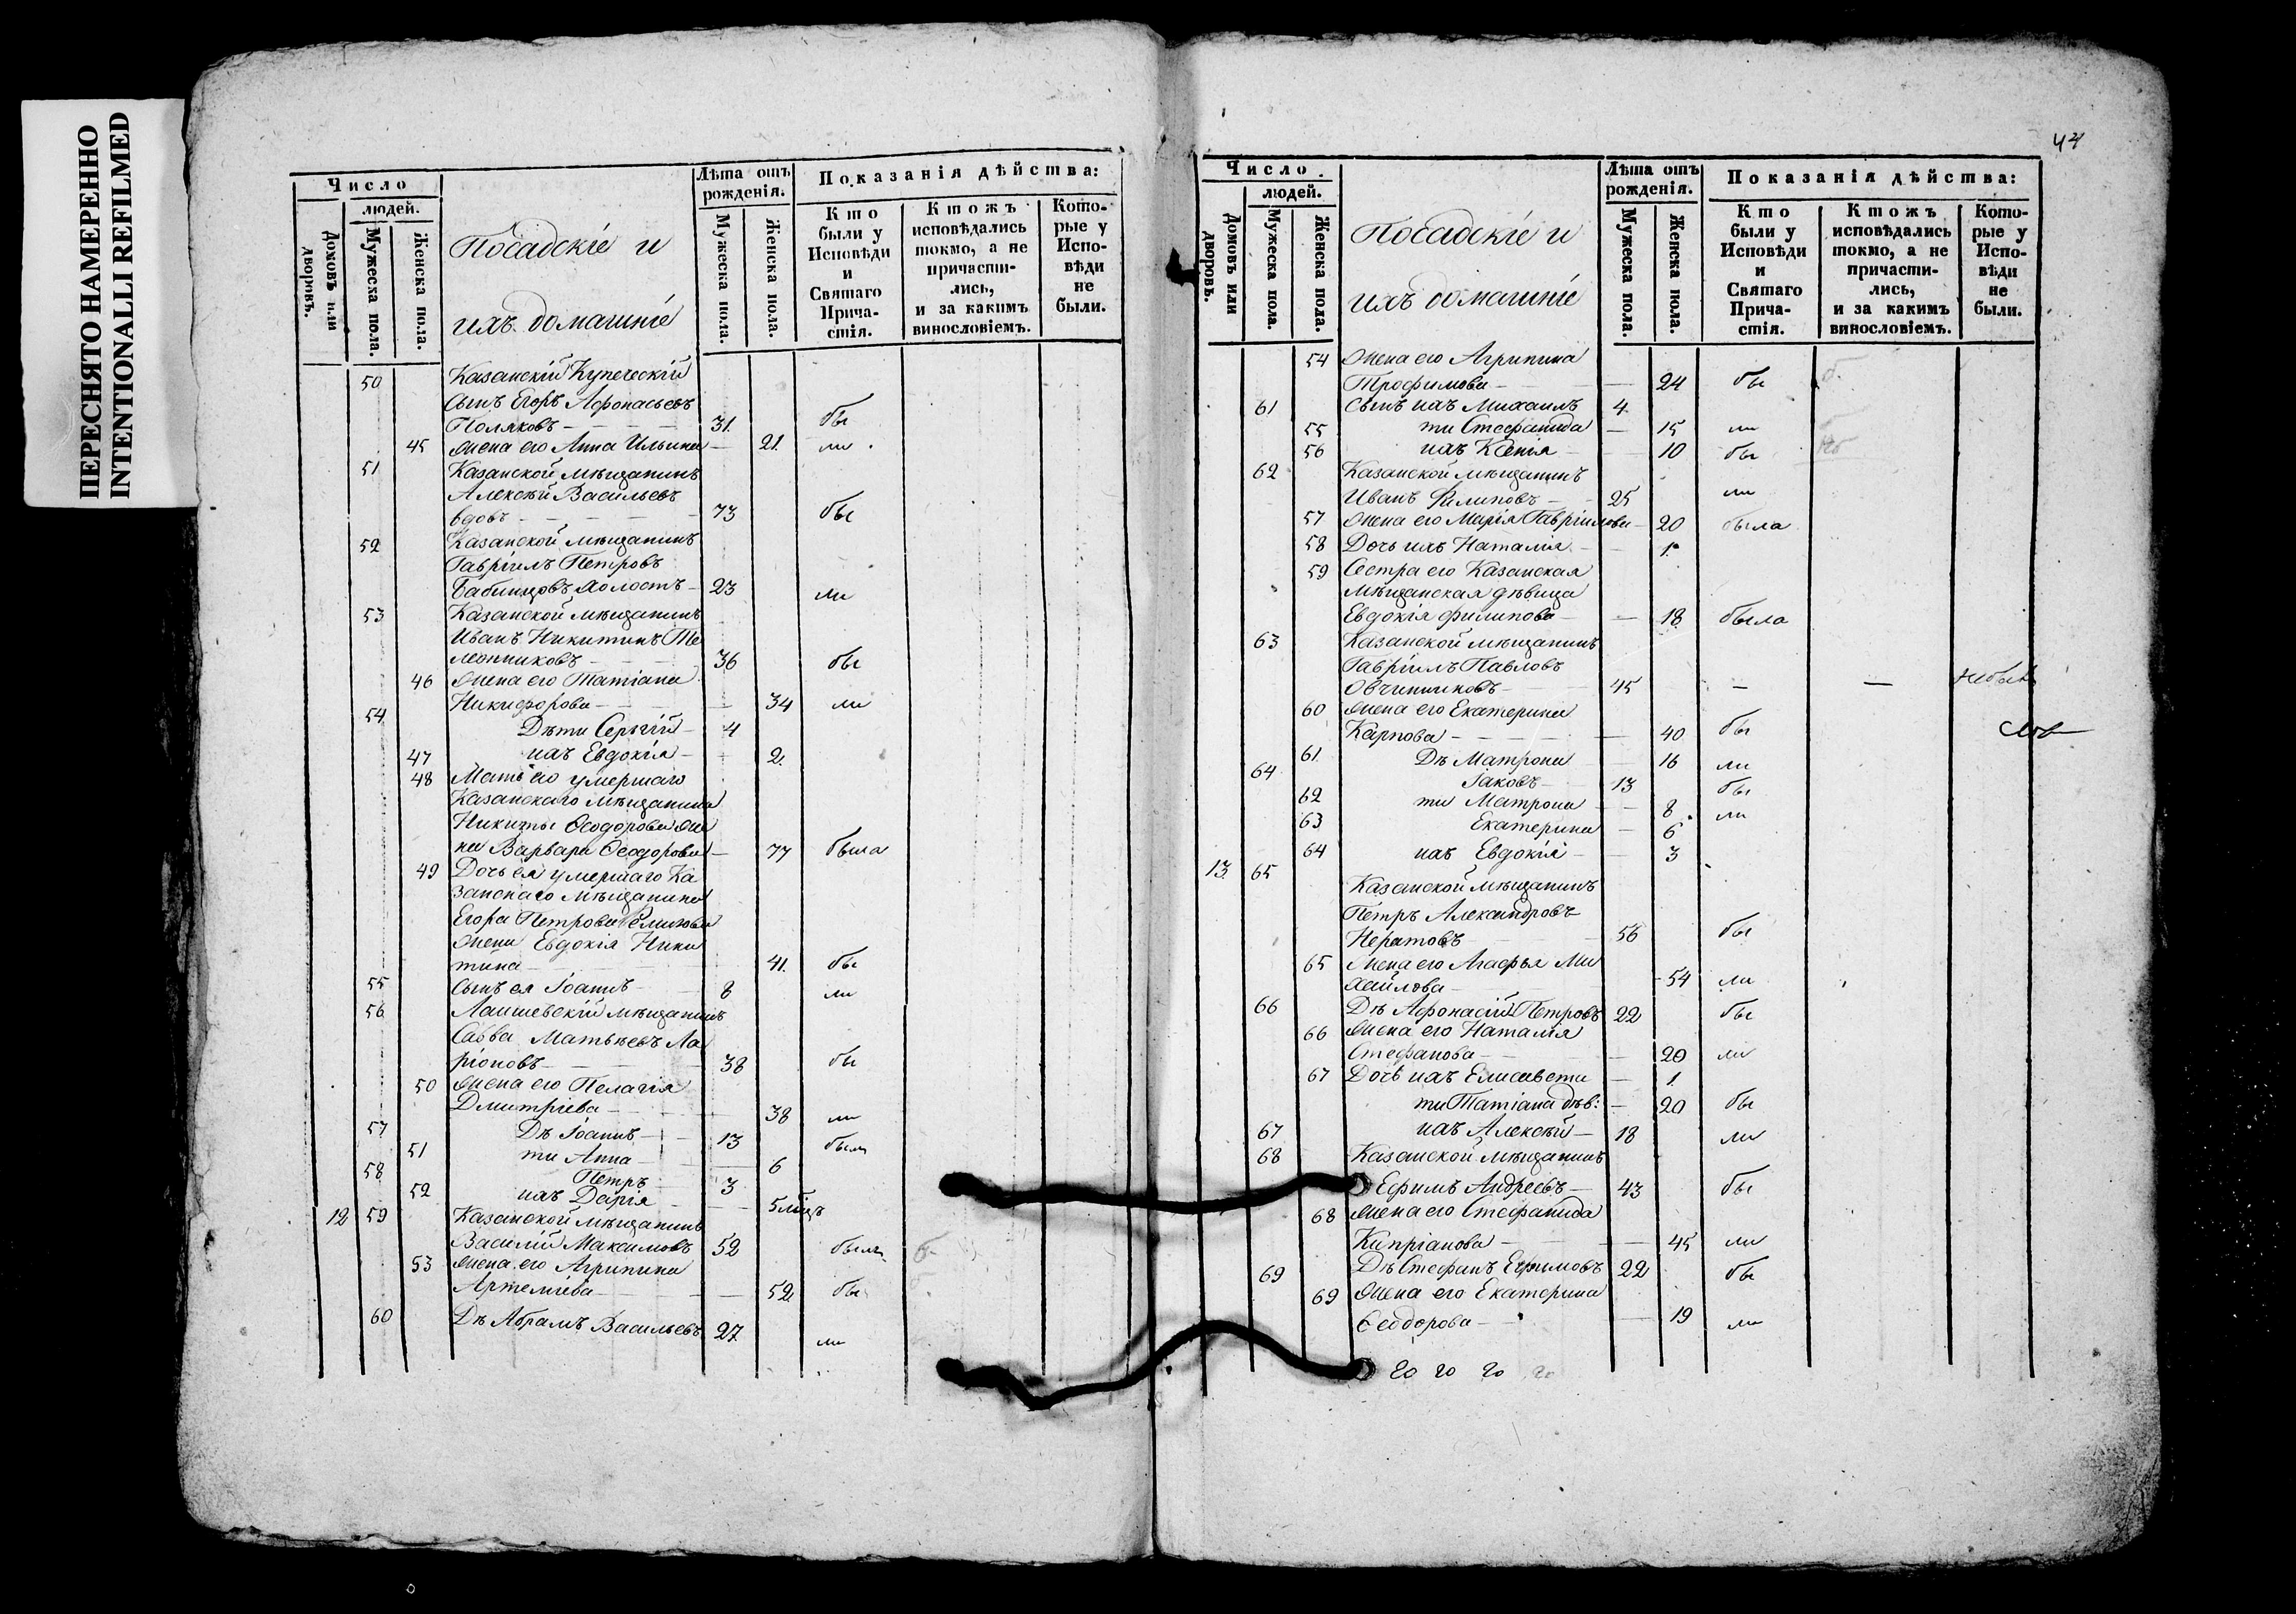 ПЕРЕСНЯТО НАМЕРЕННО
INTENTIONALLI REFILMED
Число
людей.
Домовъ или дворовъ.
Мужеска пола.
Женска пола.
Посадскіе и
ихъ домашніе
Лѣта отъ рожденія.
Мужеска пола.
Женска пола.
Показанія дѣйства:
Кто были у Исповѣди и Святаго Причастія.
Ктожъ исповѣдались токмо, а не причастились, и за какимъ винословіемъ.
Которые у Исповѣди не были.
50 Казанскій Купеческій
Сынъ Егоръ Афонасьевъ
Поляковъ 31. бы
45 Жена его Анна Ильина 21. ли
51 Казанской мѣщанинъ
Алексѣй Васильевъ
вдовъ 73 бы
52 Казанской мѣщанинъ
Гавріилъ Петровъ
Бабинцовъ холостъ 23 ли
53 Казанской мѣщанинъ
Иванъ Никитинъ Те
леонниковъ 36 бы
46 Жена его Татіана
Никифорова 34 ли
54 Дѣти Сергій 4
47 ихъ Евдокія 2.
48 Мать его умершаго
Казанскаго мѣщанина
Никиты Ѳеодорова же
на Варвара Ѳеодорова 77 была
49 Дочь ея умершаго Ка
занскаго мѣщанина
Егора Петрова
жена Евдокія Ники
тина 41. бы
55 Сынъ ея Іоаннъ 8 ли
56 Лаишевскій мѣщанинъ
Савва Матвѣевъ Ла
ріоновъ 38 бы
50 Жена его Пелагія
Дмитріева 38 ли
57 Дѣ Іоаннъ 13 были
51 ти Анна 6
58 Петръ 3
52 ихъ Дарія 5 мѣцъ
12 59 Казанской мѣщанинъ
Василій Максимовъ 52 былъ б
53 Жена его Агрипина
Артеміева 52 бы
60 Дѣ Абрамъ Васильевъ 27 ли
Число
людей.
Домовъ или дворовъ.
Мужеска пола.
Женска пола.
Посадскіе и
ихъ домашніе
Лѣта отъ рожденія.
Мужеска пола.
Женска пола.
Показанія дѣйства:
Кто были у Исповѣди и Святаго Причастія.
Ктожъ исповѣдались токмо, а не причастились, и за какимъ винословіемъ.
Которые у Исповѣди не были.
54 Жена его Агрипина
Трофимова 24 бы
61 Сынъ ихъ Михаилъ 4
55 ти Стефанида 15 ли
56 ихъ Ксенія 10 бы
62 Казанской мѣщанинъ
Иванъ Филиповъ 25 ли
57 Жена его Марія Гавріилова 20 была
58 Дочь ихъ Наталія 1.
59 Сестра его Казанская
мѣщанская дѣвица
Евдокія Филипова 18 была
63 Казанской мѣщанинъ
Гавріилъ Павловъ
Овчинниковъ 45 — — не былъ
60 Жена его Екатерина
Карпова 40 бы
61. Дѣ Матрона 16 ли
64 Іаковъ 13 бы
62 ти Матрона 8 ли
63 Екатерина 6
64 ихъ Евдокія 3
13. 65 Казанской мѣщанинъ
Петръ Александровъ
Нератовъ 56 бы
65 Жена его Агафья Ми
хайлова 54 ли
66 Дѣ Афонасій Петровъ 22 бы
66 Жена его Наталія
Стефанова 20 ли
67 Дочь ихъ Елисавета 1.
ти Татіана дѣв: 20 бы
67 ихъ Алексѣй 18 ли
68 Казанской мѣщанинъ
Ефимъ Андреевъ 43 бы
68 Жена его Стефанида
Кипріанова 45 ли
69 Дѣ Стефанъ Ефимовъ 22 бы
69 Жена его Екатерина
Ѳеодорова 19 ли
20 20 20 20